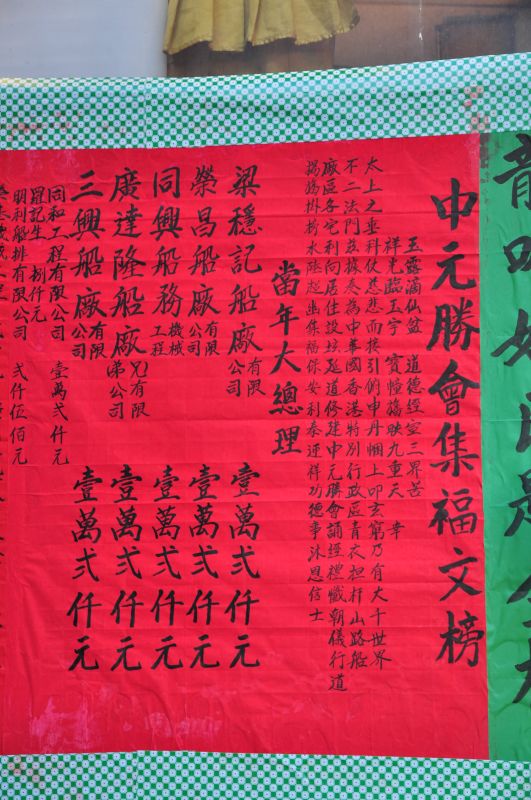 中元勝會集福文榜
玉露滴仙盆 道德經宣三界苦 幸
祥光臨玉宇 寶幢揚映九重天
太上之垂科仗慈悲而接引俯申丹悃上叩玄穹乃有大千世界
不二法門茲據奏為中華國香港特別行政區青衣担杆山路船
廠區各宅利向居住設壇延道修建中元勝會誦經禮懺朝儀行道
水陸超幽集福保安利泰迎祥功德事沐恩信士
當年大總理
梁穩記船廠有限公司 壹萬弍仟元
榮昌船廠有限公司 壹萬弍仟元
同興船務機械工程 壹萬弍仟元
廣達隆船廠兄弟有限公司 壹萬弍仟元
三興船廠有限公司 壹萬弍仟元
同和工程有限公司 壹萬弍仟元
羅記生 捌仟元
明利船排有限公司 弍仟伍佰元